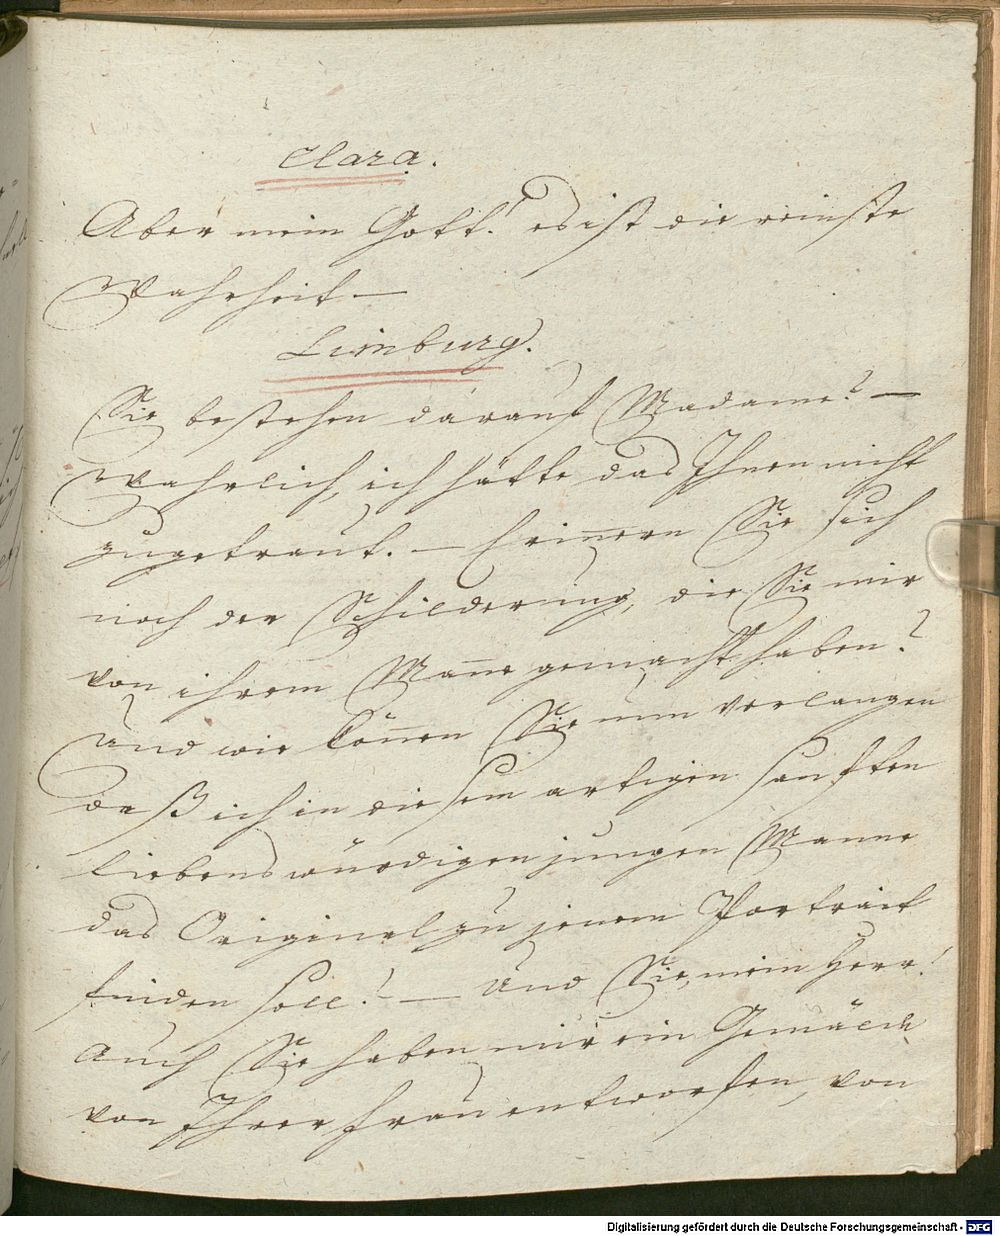 Clara.
Aber mein Gott! es ist die reinste
Wahrheit —
Limburg.
Sie bestehen darauf Madame? —
Wahrlich, ich hätte das Ihnen nicht
zugetraut. — Erinnern Sie sich
noch der Schilderung, die Sie mir
von ihrem Manne gemacht haben?
Und wie können Sie nun verlangen
daß ich in diesem artigen sanften
liebenswürdigen jungen Manne
das Original zu jenem Portrait
finden soll! — Und Sie, mein Herr!
Auch Sie haben mir ein Gemälde
von Ihrer Frau entworfen, von
Digitalisierung gefördert durch die Deutsche Forschungsgemeinschaft - DFG